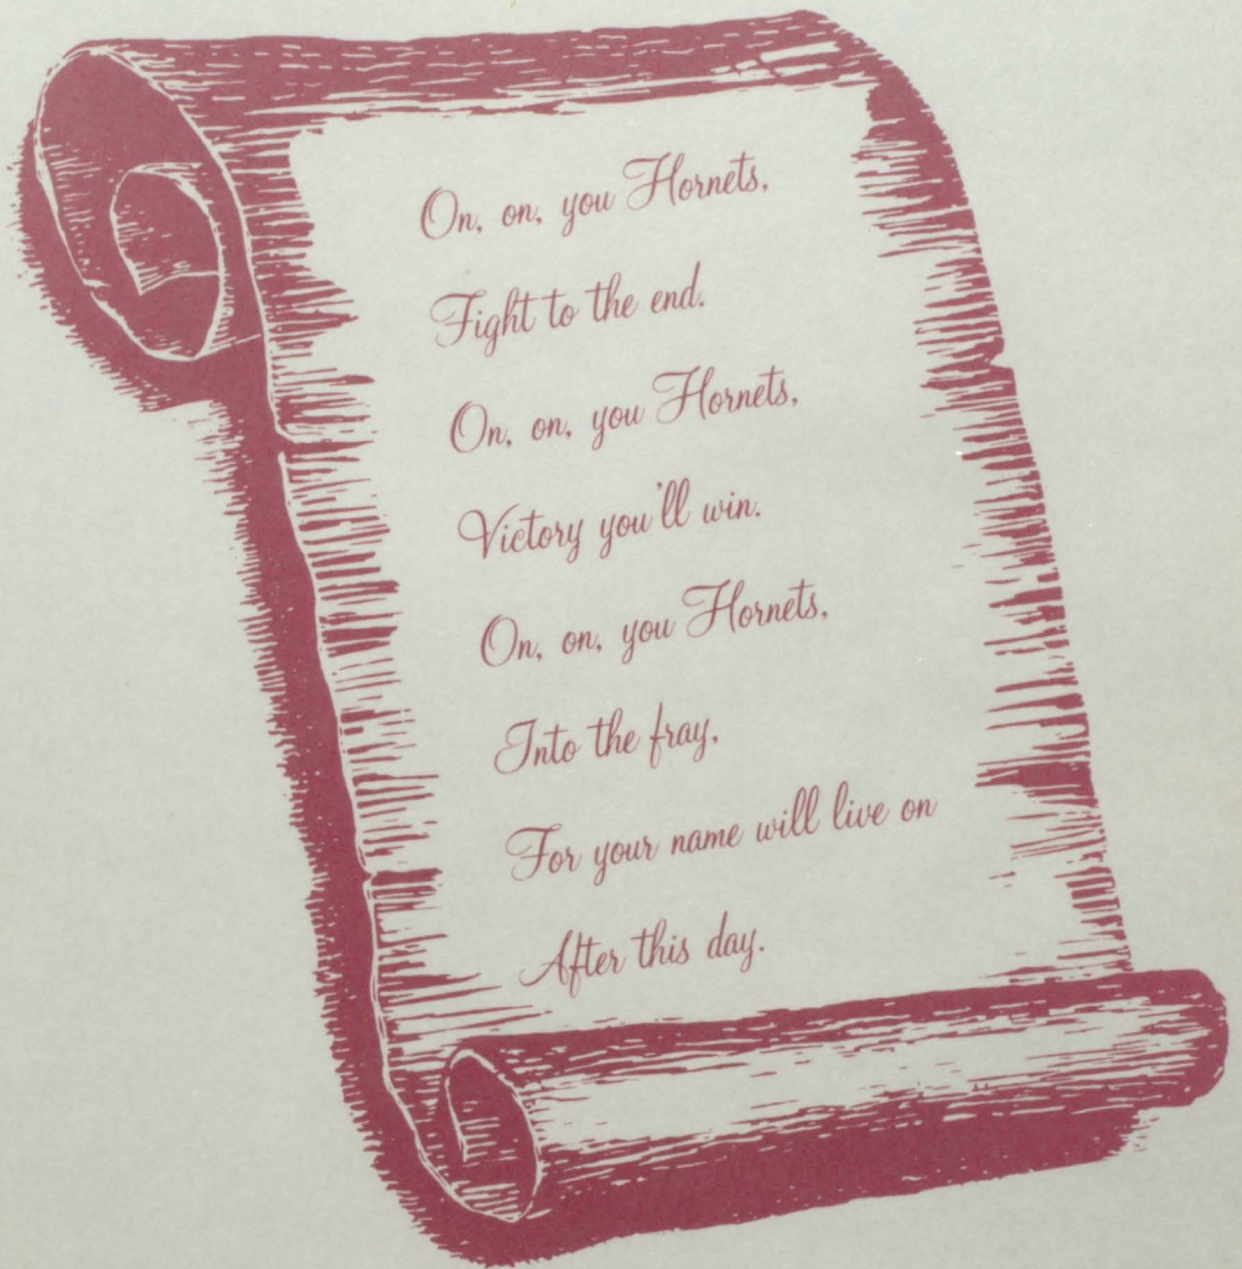 On, on, you Hornets,
Fight to the end.
On, on, you Hornets,
Victory you'll win.
On, on, you Hornets,
Into the fray,
For your name will live on
After this day.